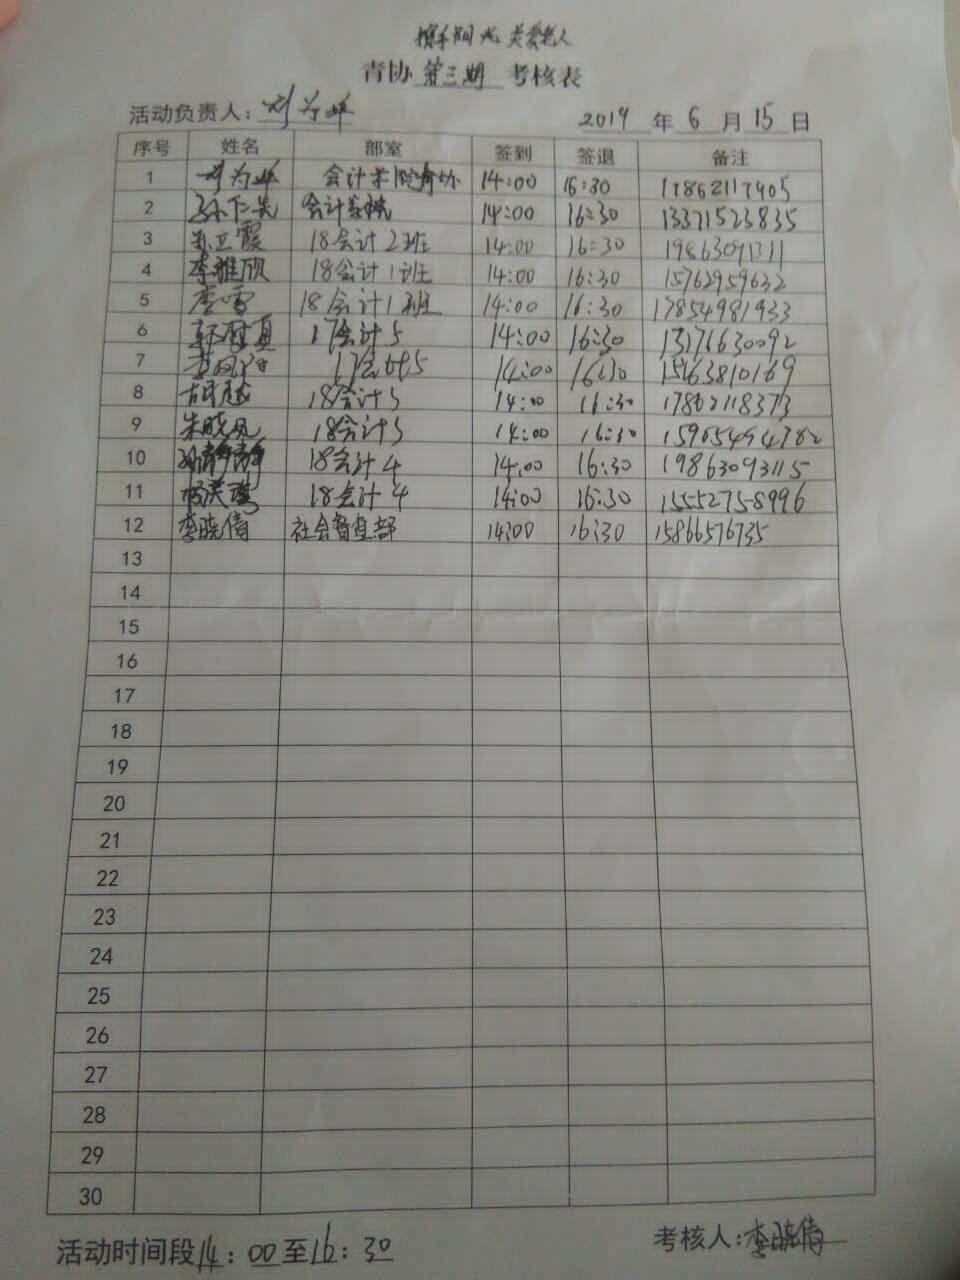 携手阳光 关爱老人
青协第三期 考核表
活动负责人: 2019 年 6 月 15 日
序号 姓名 部室 签到 签退 备注
1 会计学院青协 14:00 16:30 17862117905
2 会计学院 14:00 16:30 13371523835
3 18会计2班 14:00 16:30
4 李雅欣 18会计1班 14:00 16:30 15762959632
5 李雪 18会计1班 14:00 16:30 17854981933
6 17会计5 14:00 16:30 13176630092
7 17会计5 14:00 16:30 15163810169
8 18会计3 14:00 16:30 17862118373
9 朱晓凤 18会计3 14:00 16:30 15965494782
10 孙静静 18会计4 14:00 16:30 19863093115
11 18会计4 14:00 16:30 15552758996
12 李晓倩 社会督查部 14:00 16:30 15866576735
13
14
15
16
17
18
19
20
21
22
23
24
25
26
27
28
29
30
活动时间段14:00至16:30 考核人:李晓倩